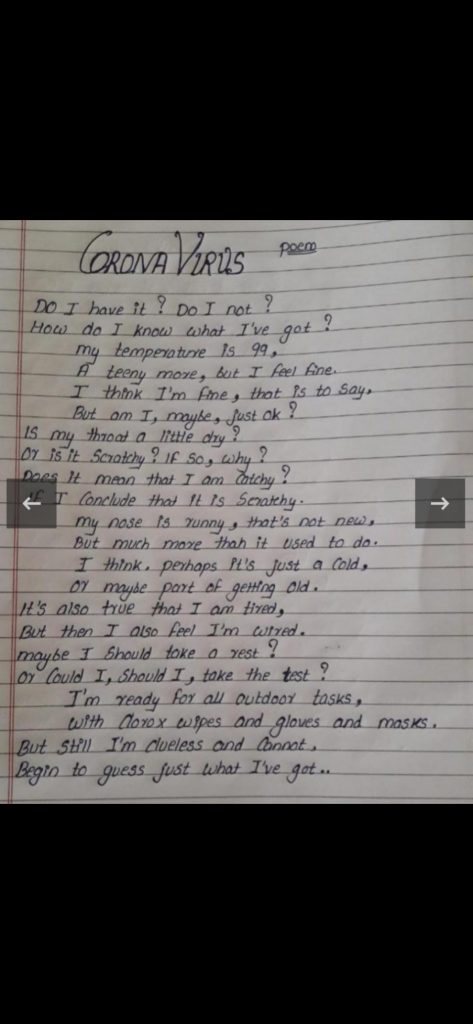 CORONA VIRUS poem
DO I have it ? DO I not ?
How do I know what I've got ?
my temperature is 99,
A teeny more, but I feel fine.
I think I'm fine, that is to say,
But am I, maybe, just ok ?
Is my throat a little dry ?
Or is it Scratchy ? If so, why ?
Does it mean that I am Catchy ?
If I Conclude that it is Scratchy.
my nose is runny, that's not new,
But much more than it used to do.
I think. perhaps it's just a Cold,
Or maybe part of getting old.
It's also true that I am tired,
But then I also feel I'm wired.
maybe I Should take a rest ?
Or Could I, Should I, take the test ?
I'm ready for all outdoor tasks,
with Clorox wipes and gloves and masks.
But still I'm Clueless and Cannot,
Begin to guess just what I've got..